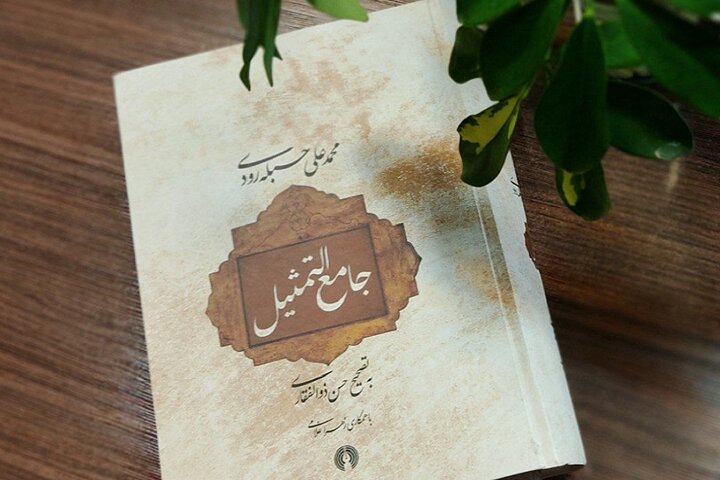 محمد علی حبله رودی
جامع التمثیل
به تصحیح حسن ذوالفقاری
با همکاری زهرا غلامی